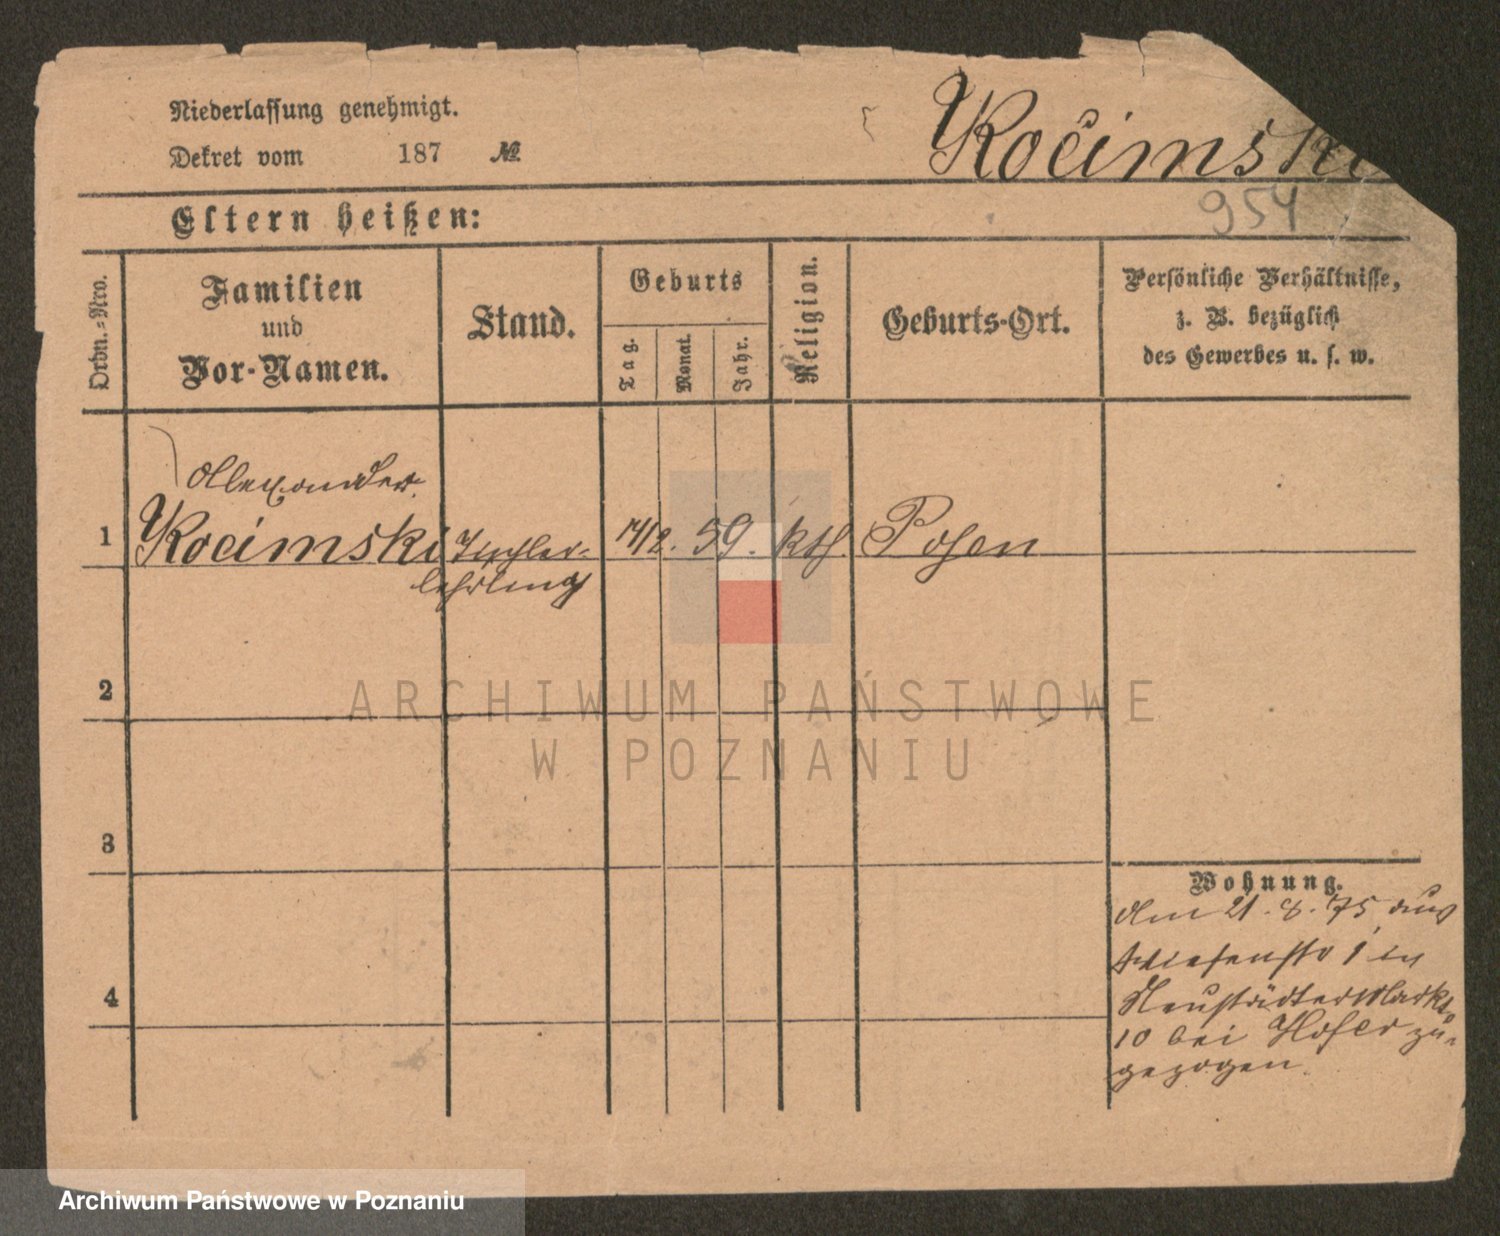 Niederlassung genehmigt.
Dekret vom 187 №
Kočimski
954
Eltern heißen:
Ordn.-Nro.
Familien
und
Vor-Namen.
Stand.
Geburts
Tag.
Monat.
Jahr.
Religion.
Geburts-Ort.
Persönliche Verhältnisse,
z. B. bezüglich
des Gewerbes u. s. w.
Alexander
1 Kocimski Tischler- 14/2. 59. kth Posen
lehrling
2
3
4
Wohnung.
Am 21. 8. 75 aus
Wiesenstr 1 in
Neustädter Markt
10 bei Hofer zu-
gezogen.
ARCHIWUM PAŃSTWOWE
W POZNANIU
Archiwum Państwowe w Poznaniu